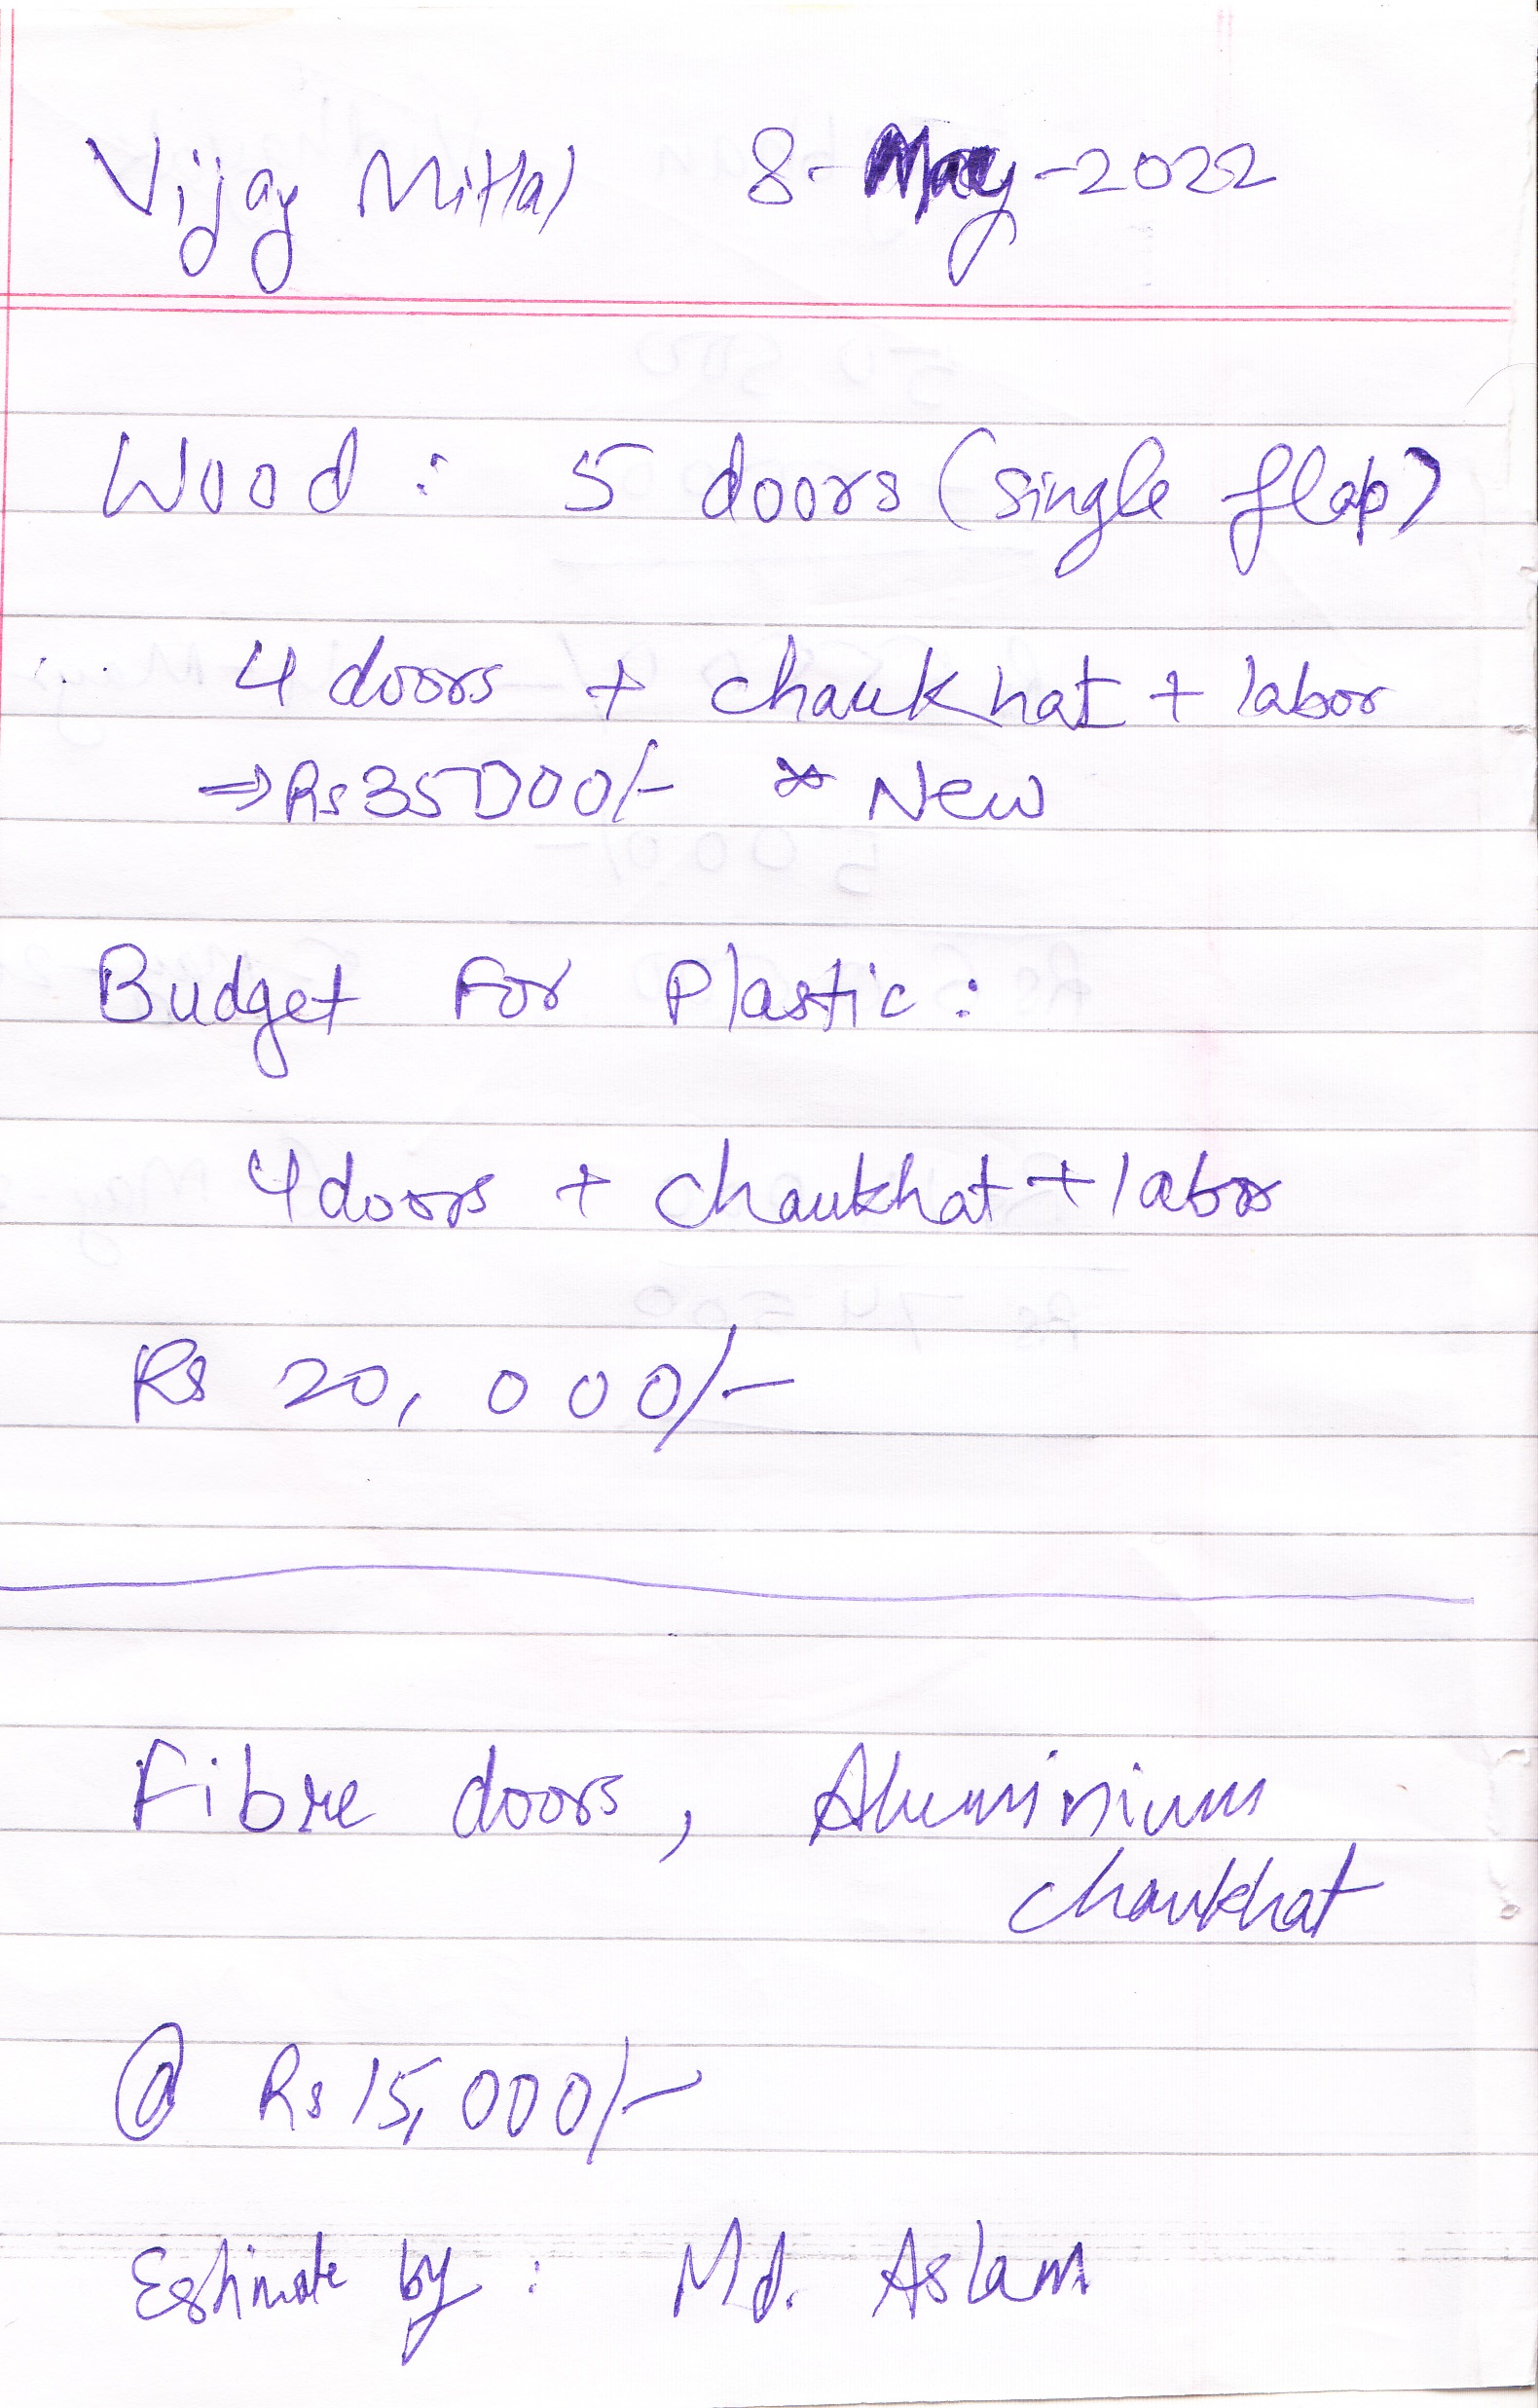 Vijay Mittal 8-May-2022
Wood: 5 doors (single flap)
4 doors + chaukhat + labor
⇒ Rs 35000/- * New
Budget For Plastic:
4 doors + chaukhat + labor
Rs 20,000/-
Fibre doors, Aluminium
chaukhat
@ Rs 15,000/-
Estimate by: Md. Aslam